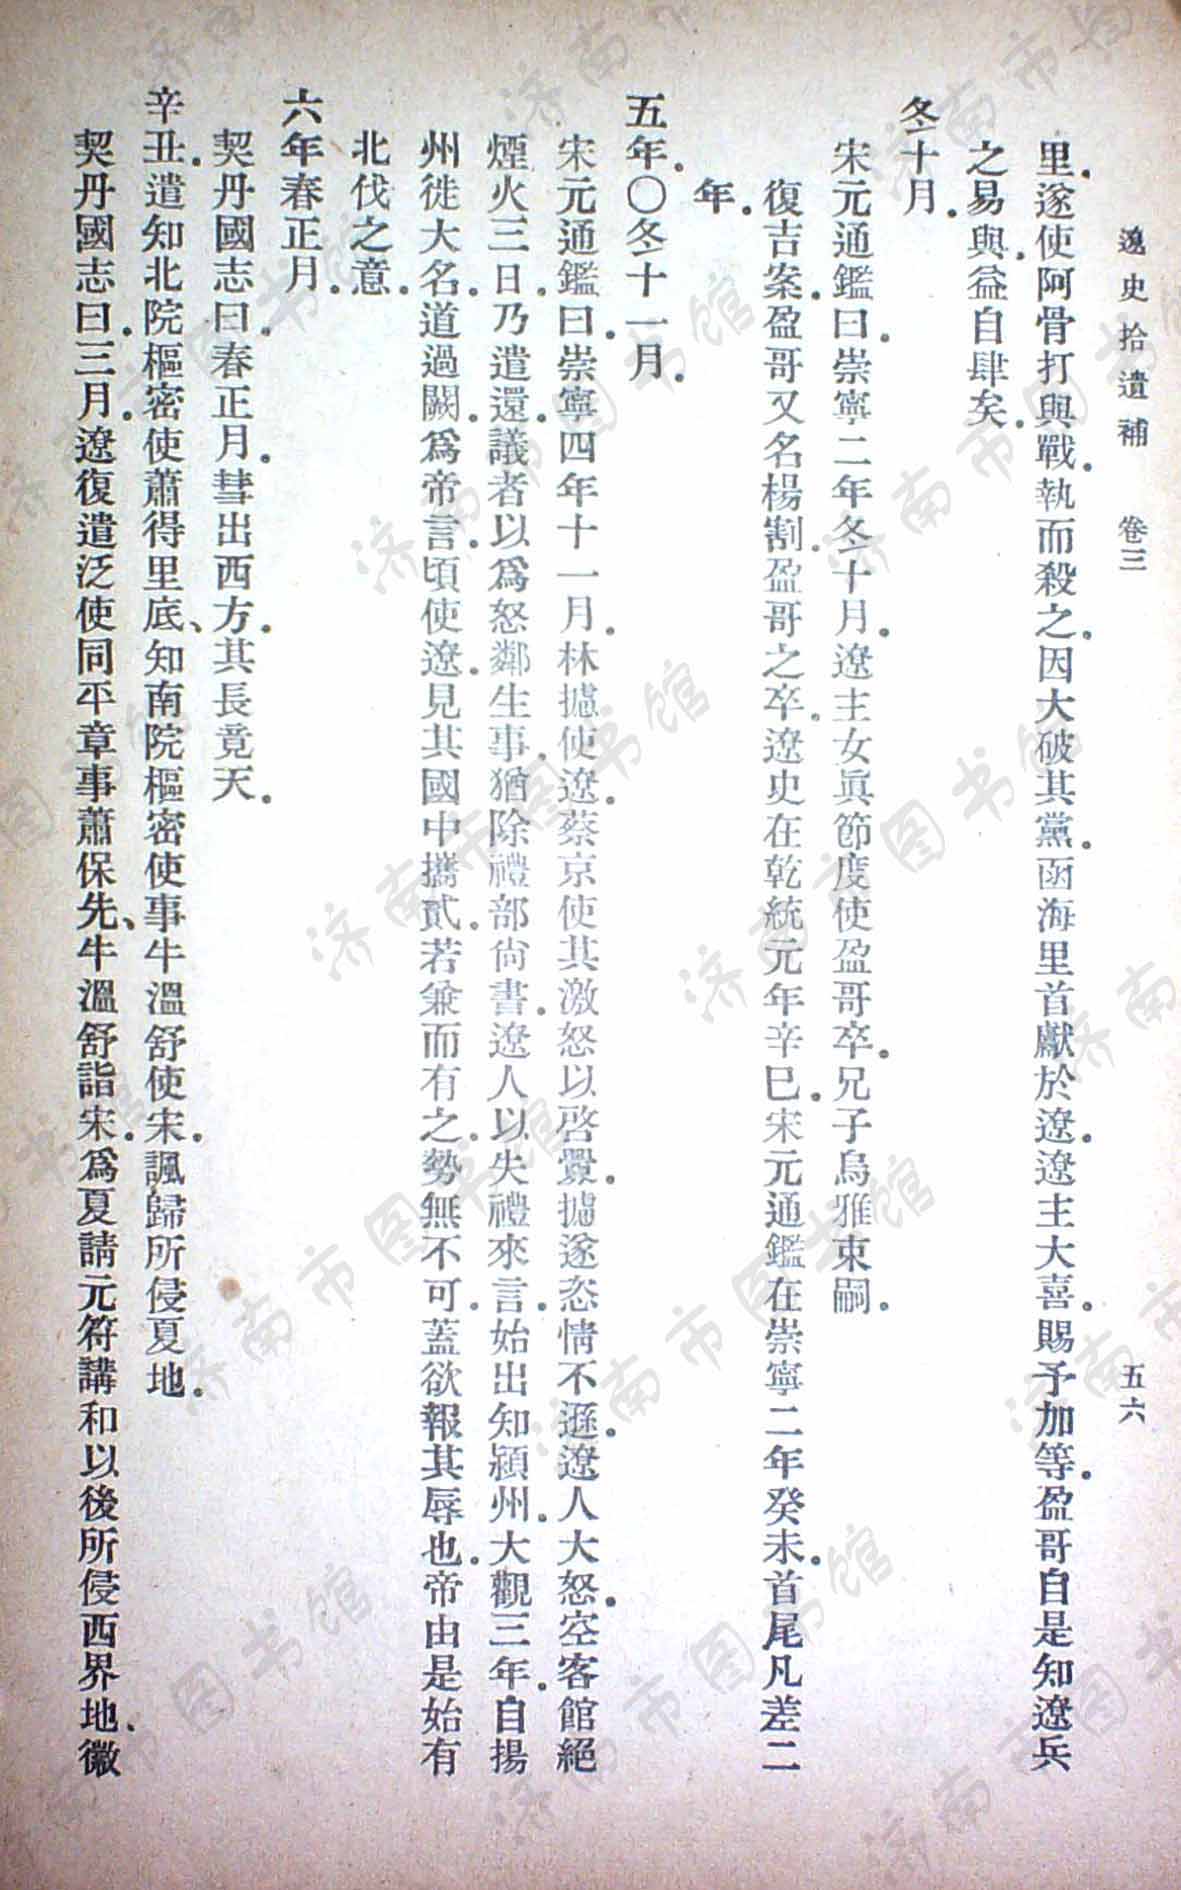 遼史拾遺補　卷三　五六
里。遂使阿骨打與戰。執而殺之。因大破其黨。函海里首獻於遼。遼主大喜。賜予加等。盈哥自是知遼兵
之易與。益自肆矣。
冬十月。
宋元通鑑曰。崇寧二年冬十月。遼主女眞節度使盈哥卒。兄子烏雅束嗣。
復吉案。盈哥又名楊割。盈哥之卒。遼史在乾統元年辛巳。宋元通鑑在崇寧二年癸未。首尾凡差二
年。
五年。〇冬十一月。
宋元通鑑曰。崇寧四年十一月。林攄使遼。蔡京使其激怒以啓釁。攄遂恣情不遜。遼人大怒。空客館絕
煙火三日。乃遣還。議者以爲怒鄰生事。猶除禮部尙書。遼人以失禮來言。始出知潁州。大觀三年。自揚
州徙大名。道過闕。爲帝言。頃使遼。見其國中攜貳。若兼而有之。勢無不可。蓋欲報其辱也。帝由是始有
北伐之意。
六年春正月。
契丹國志曰。春正月。彗出西方。其長竟天。
辛丑。遣知北院樞密使蕭得里底、知南院樞密使事牛溫舒使宋。諷歸所侵夏地。
契丹國志曰。三月。遼復遣泛使同平章事蕭保先、牛溫舒詣宋。爲夏請元符講和以後所侵西界地、徽
济南市图书馆